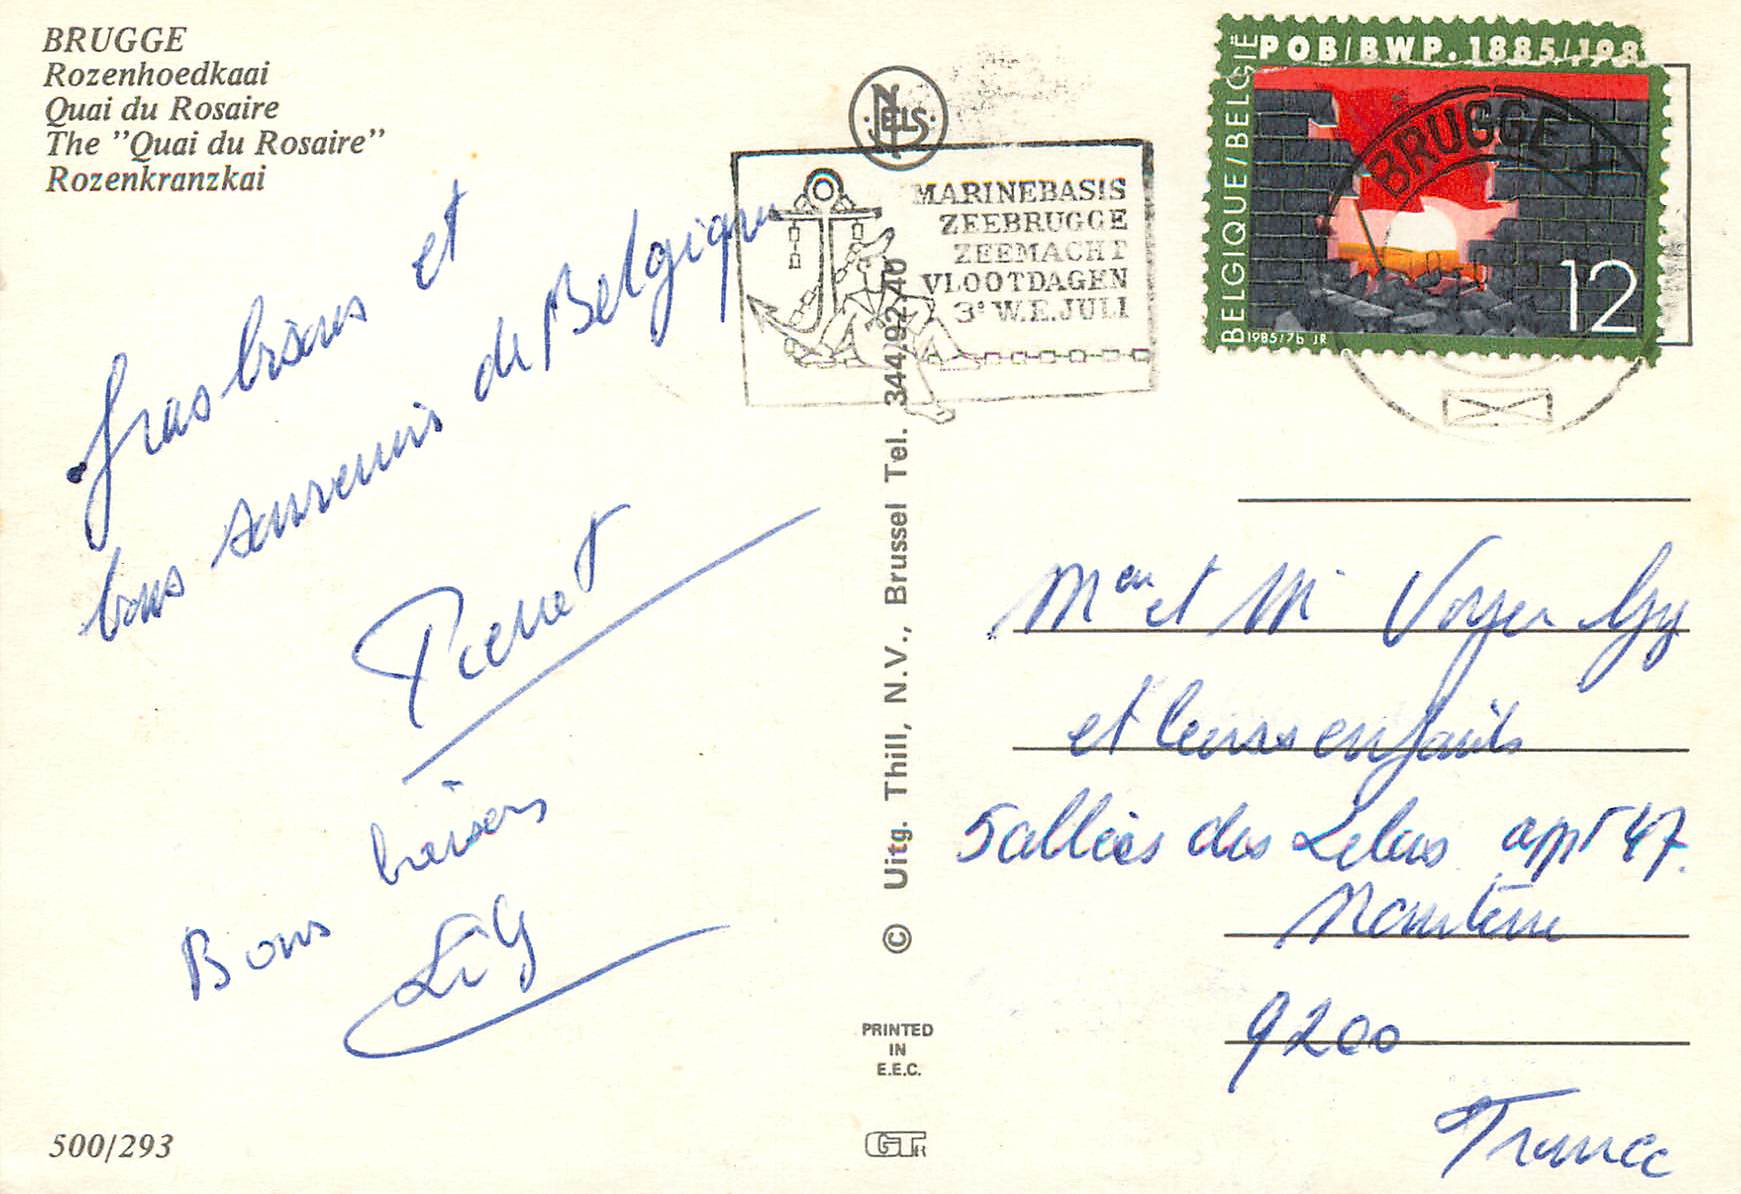 BRUGGE
Rozenhoedkaai
Quai du Rosaire
The "Quai du Rosaire"
Rozenkranzkai
gros bisous et
bons souvenirs de Belgique
Pierret
Bons baisers
500/293
NELS
MARINEBASIS
ZEEBRUGGE
ZEEMACHT
VLOOTDAGEN
3e W.E. JULI
© Uitg. Thill, N.V., Brussel Tel. 344.92.40
PRINTED
IN
E.E.C.
POB/BWP. 1885/198
BELGIQUE/BELGIË
12
1985/7b JR
BRUGGE 1
Mme et Mr Voyer Guy
et leurs enfants
5 allées des Lilas appt 47.
Nanterre
9200
France